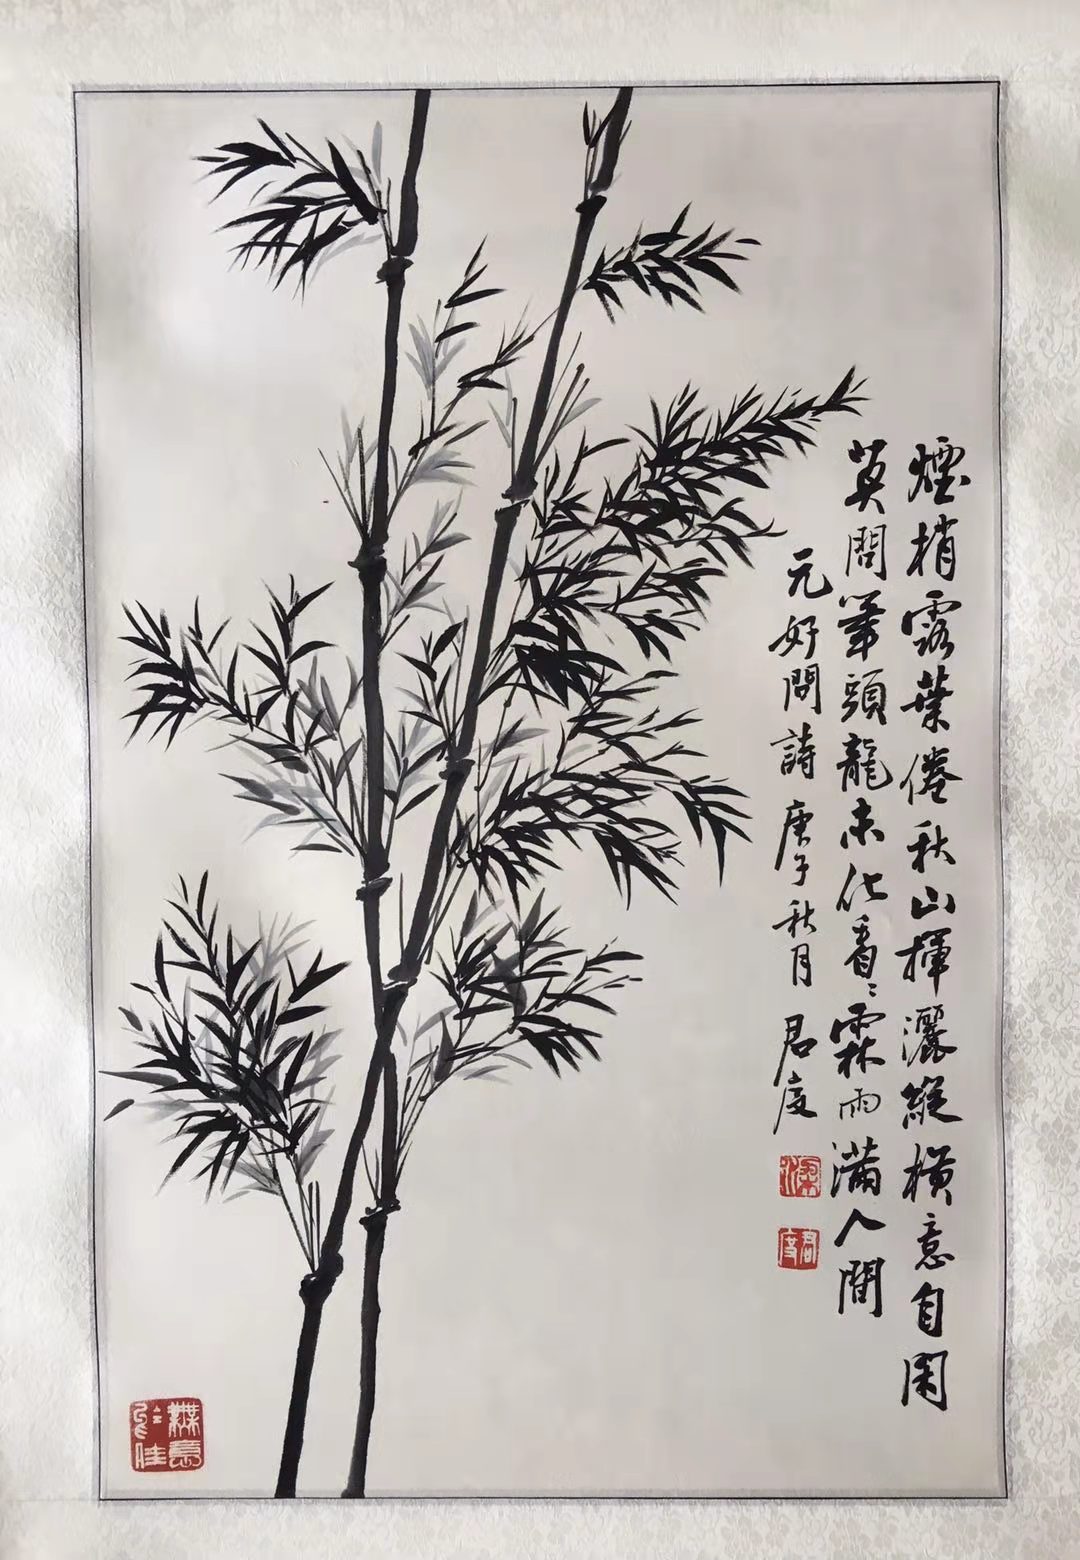 煙梢露葉僊秋山揮灑縱橫意自閑
莫問筆頭龍未化看〻霖雨滿人間
元好問詩 庚子秋月 君度
君度
無意於佳